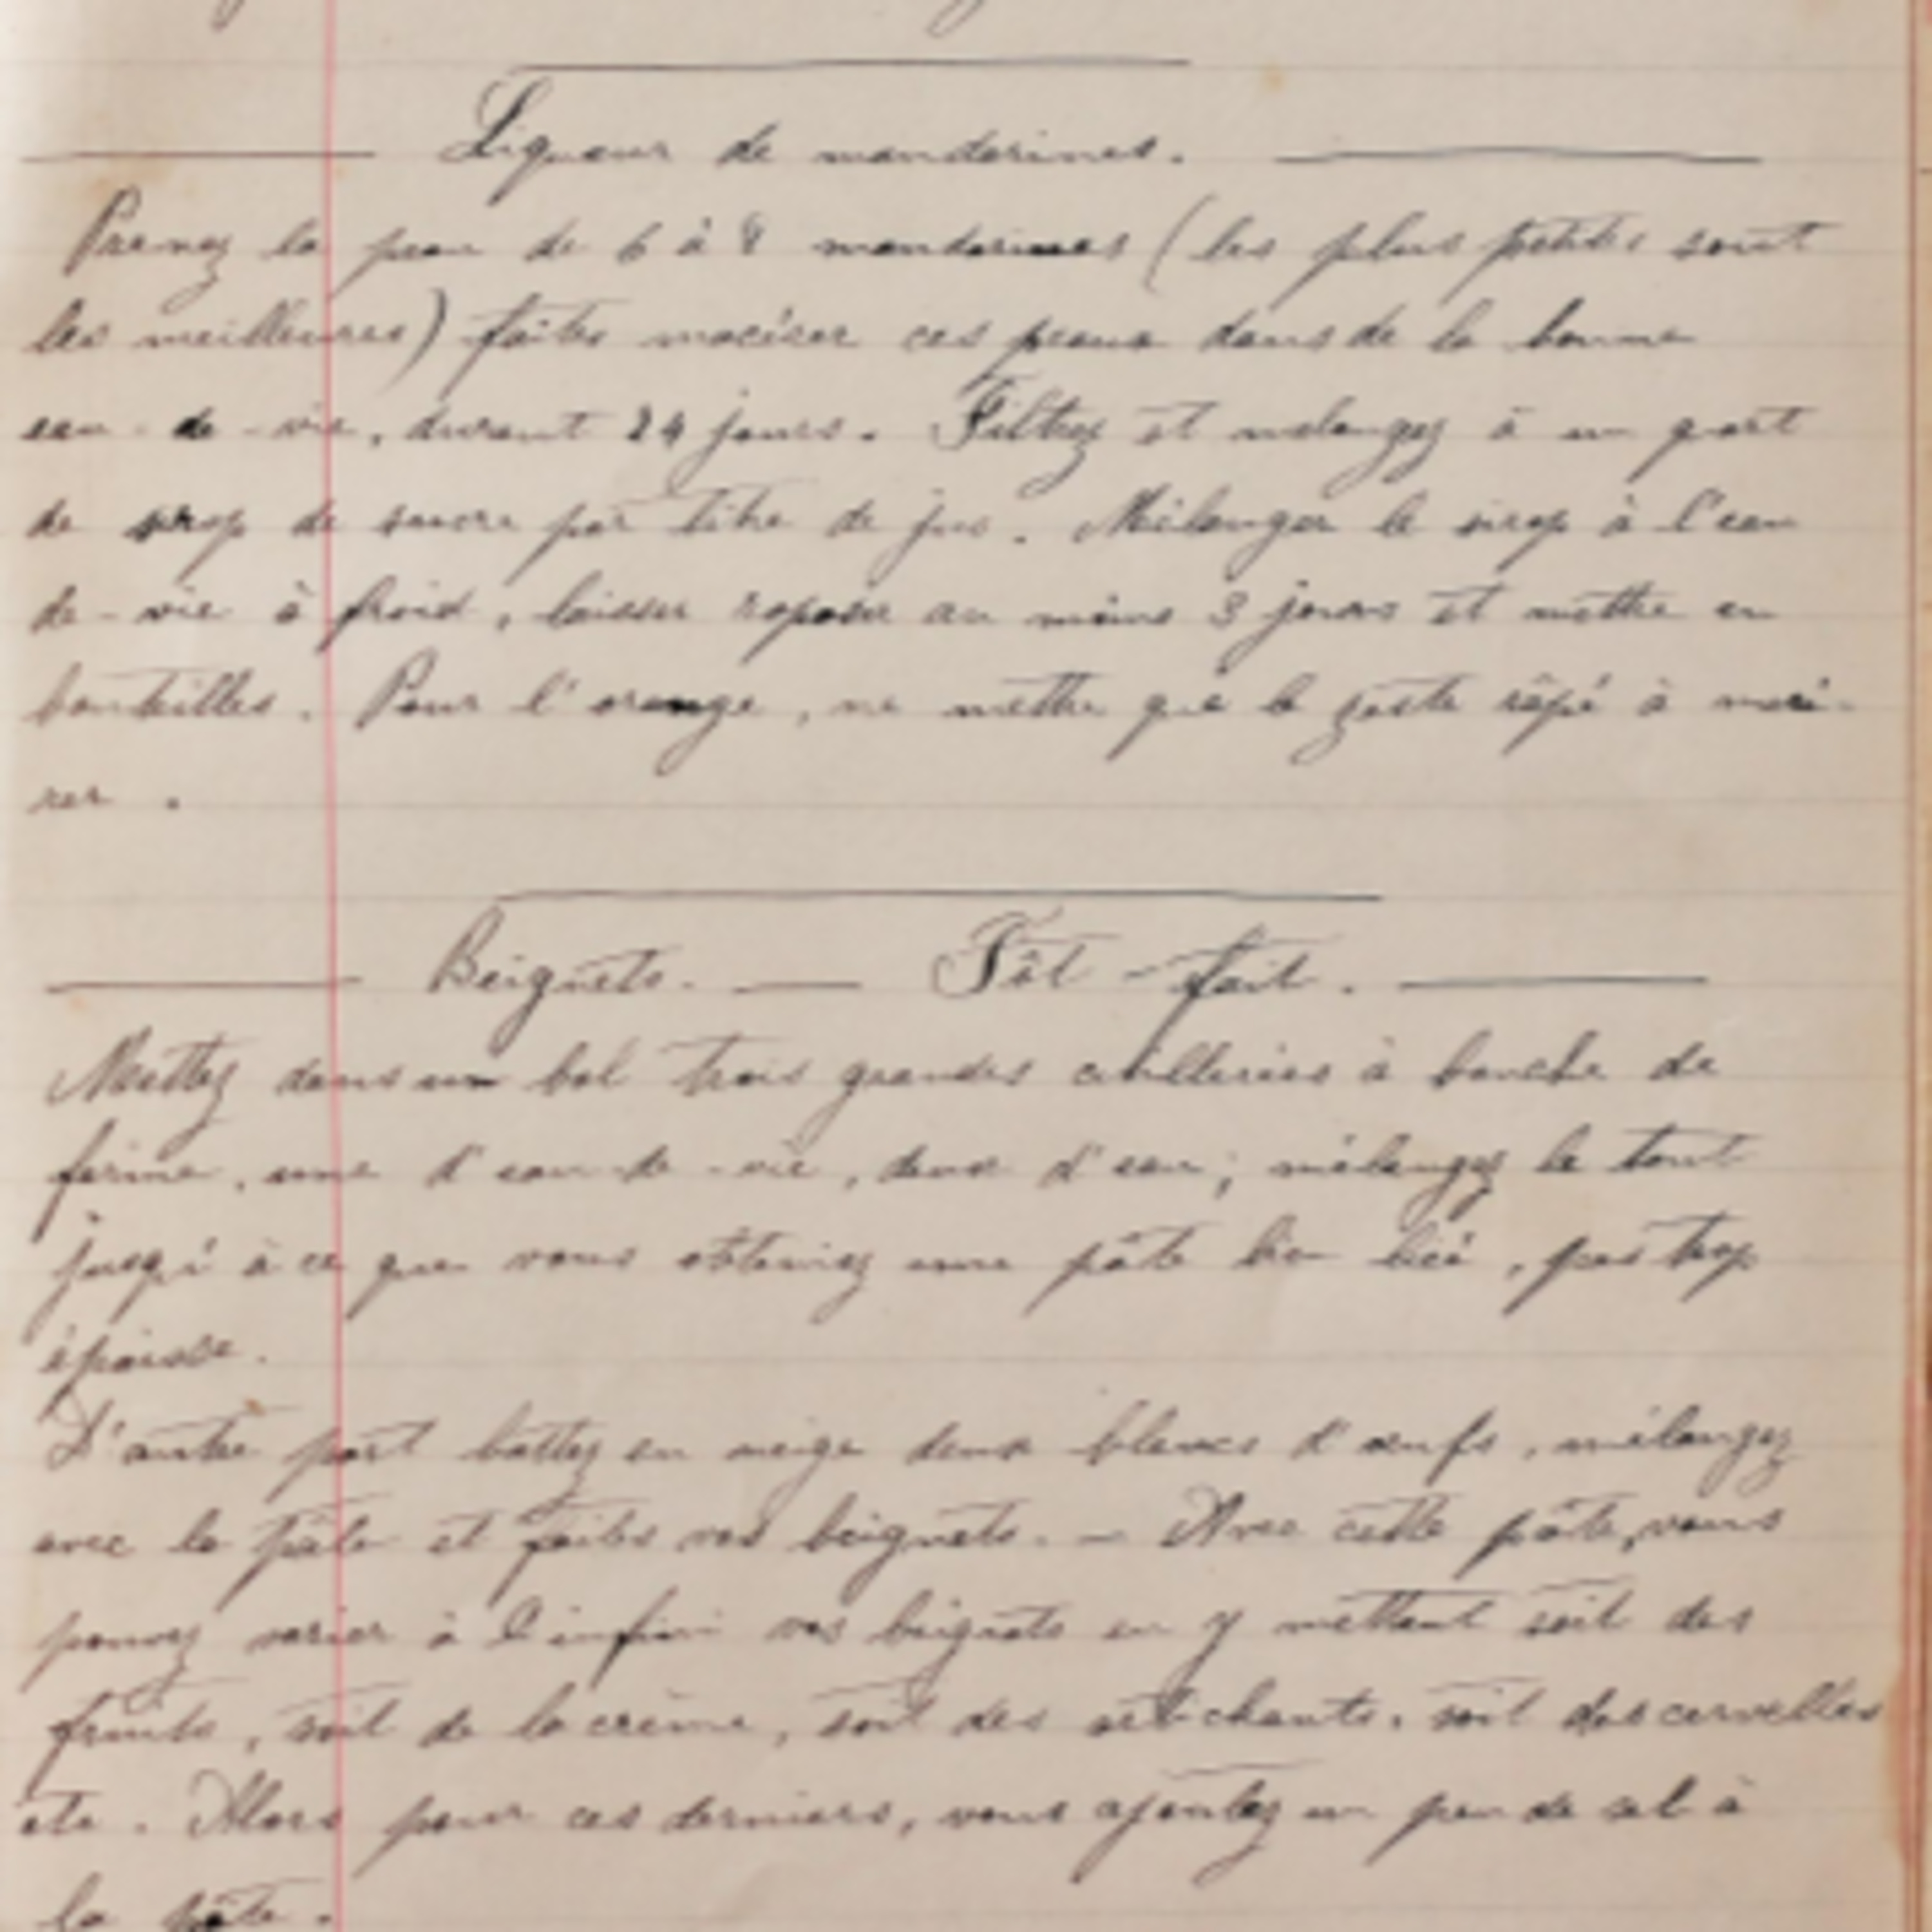 Liqueur de mandarines.
Prenez la peau de 6 à 8 mandarines (les plus petites sont
les meilleures) faites macérer ces peaux dans de la bonne
eau-de-vie, durant 24 jours. Filtrez et mélangez à un quart
de sirop de sucre par litre de jus. Mélanger le sirop à l'eau
de-vie à froid, laisser reposer au moins 3 jours et mettre en
bouteilles. Pour l'orange, ne mettre que le zeste râpé à macé-
rer.
Beignets. — Tôt-fait.
Mettez dans un bol trois grandes cuillerées à bouche de
farine, une d'eau-de-vie, deux d'eau; mélangez le tout
jusqu'à ce que vous obteniez une pâte bien liée, pas trop
épaisse.
D'autre part battez en neige deux blancs d'œufs, mélangez
avec la pâte et faites vos beignets. — Avec cette pâte, vous
pouvez varier à l'infini vos beignets en y mettant soit des
fruits, soit de la crème, soit des artichauts, soit des cervelles
etc. Alors pour ces derniers, vous ajoutez un peu de sel à
la pâte.